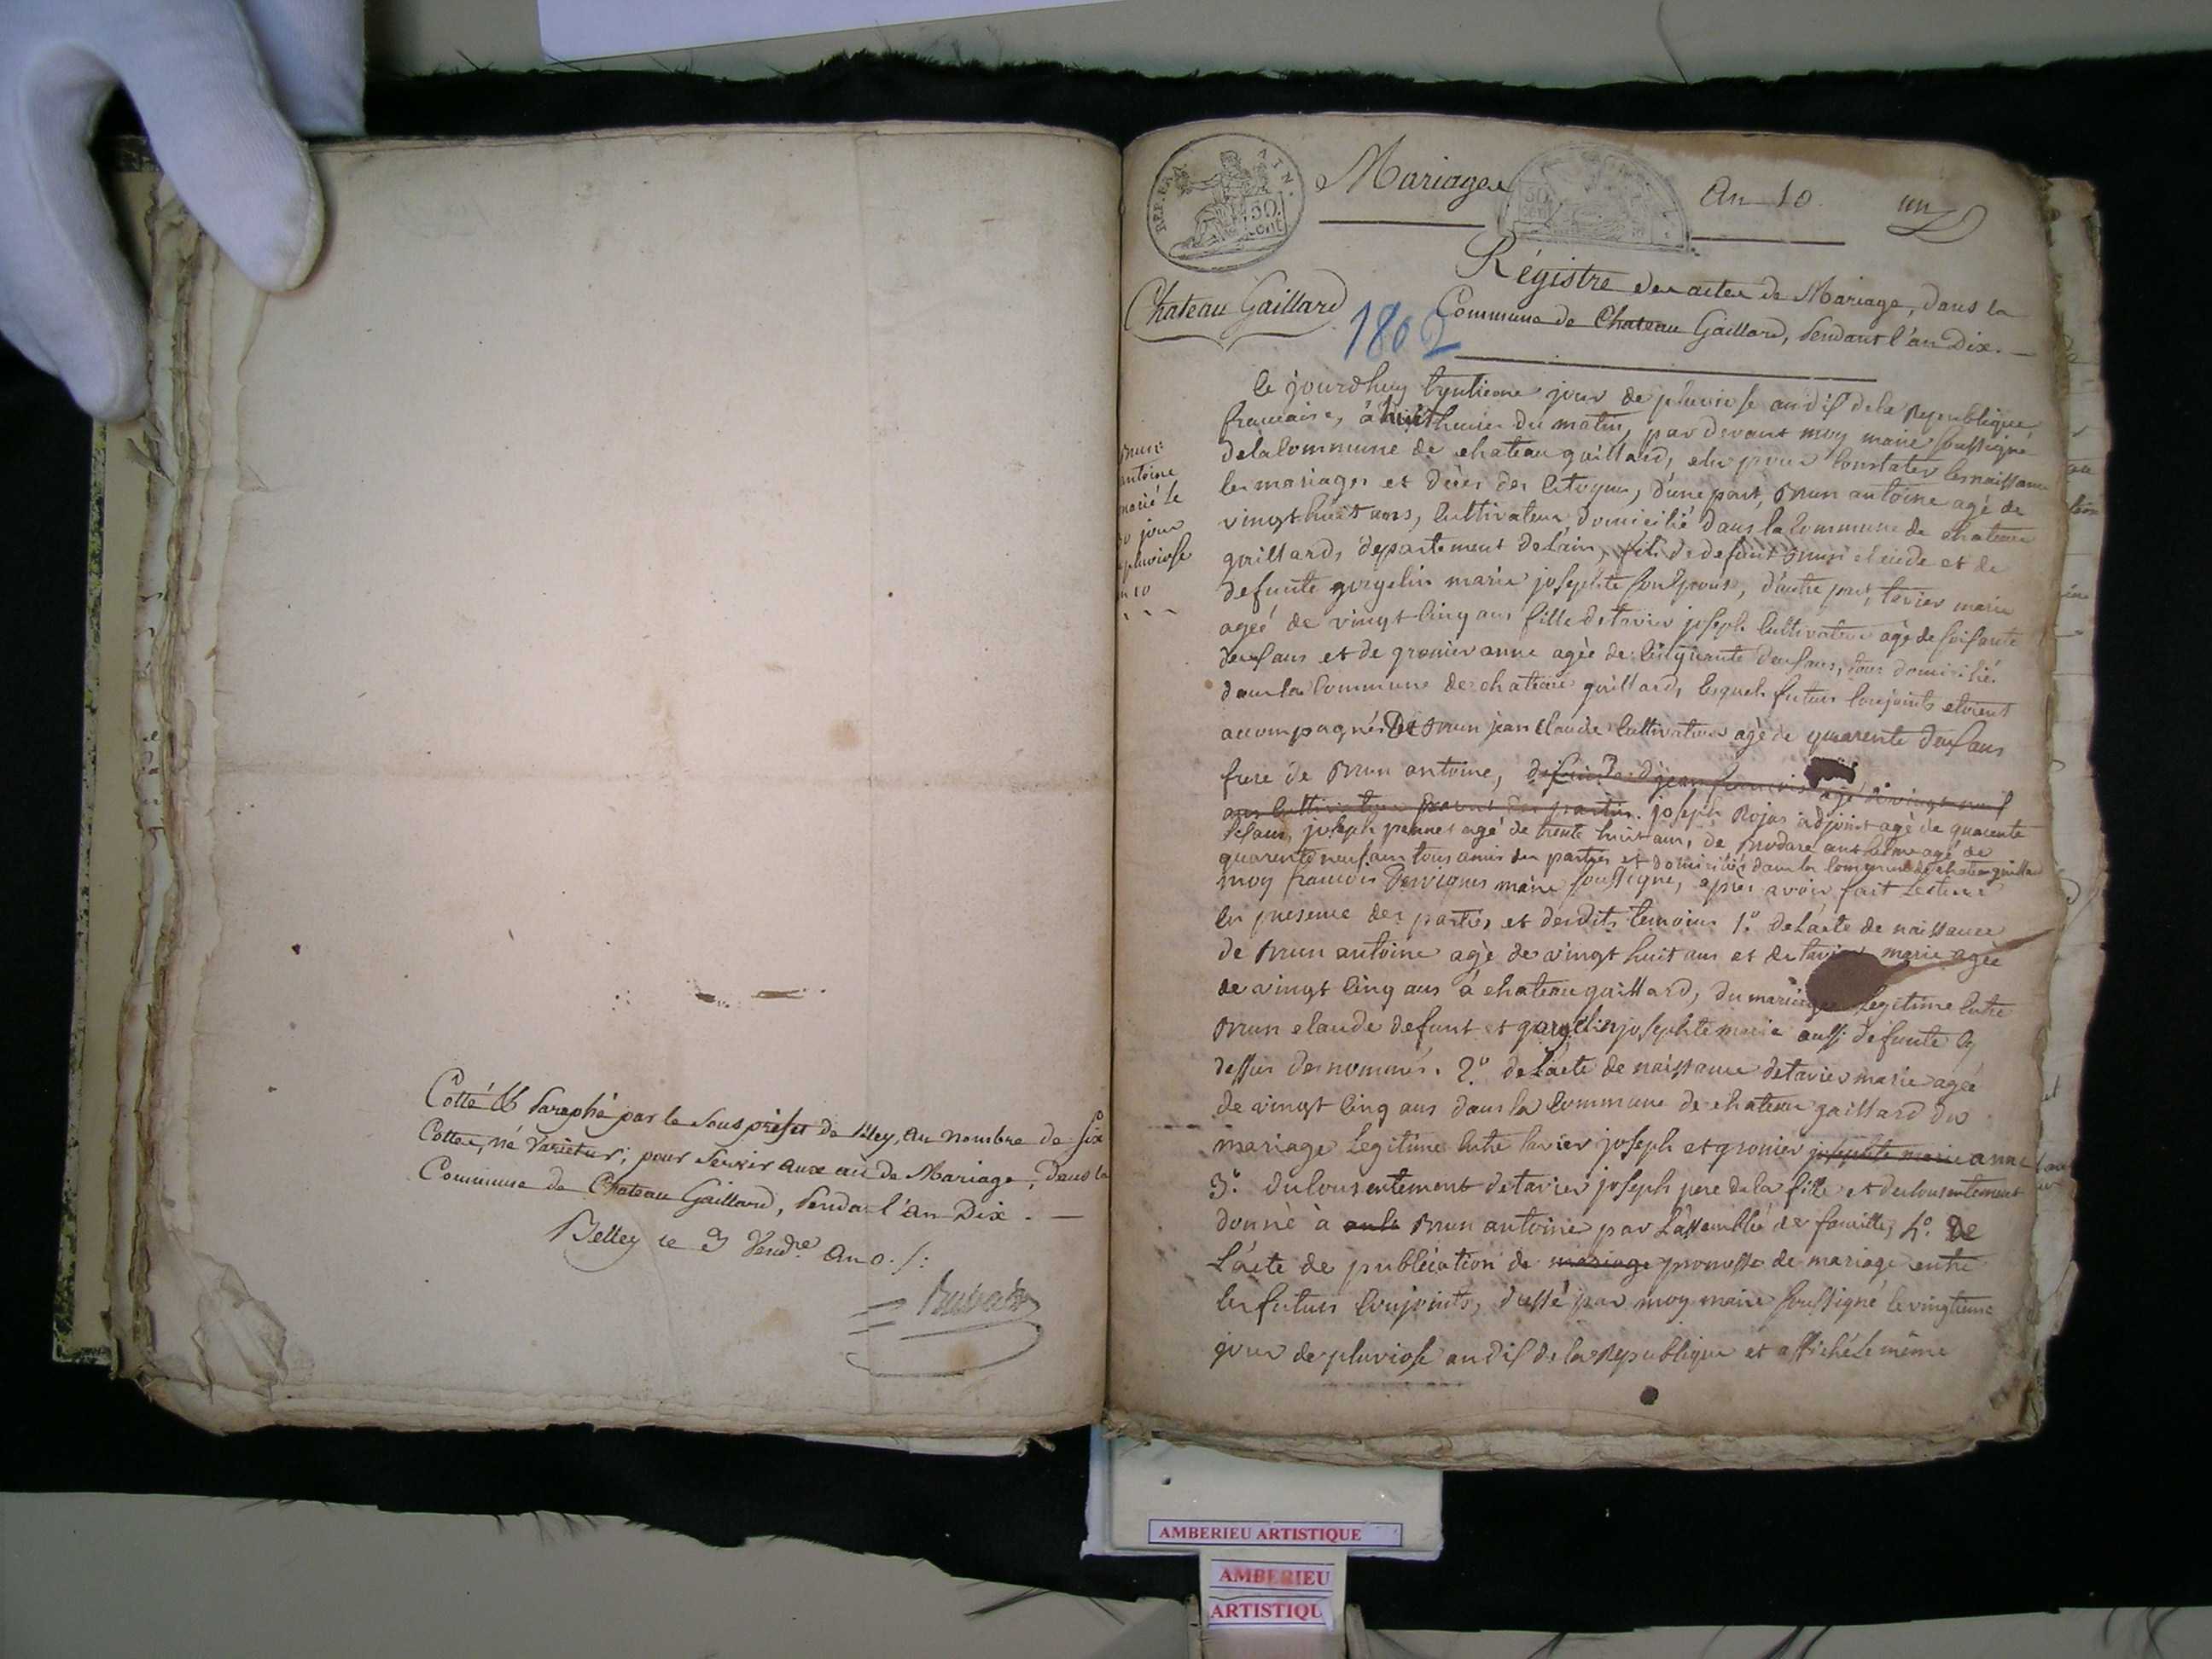 Cotté & Paraphé par le sous préfet de Belley, au nombre de six
Cottes, né varietur, pour servir aux actes de Mariage, dans la
Commune de Chateau Gaillard, pendant l'an Dix. —
Belley ce 3 Vendre an 10 /:
REP. FRA
AIN.
50.
cent
Mariages
An 10.
un
Chateau Gaillard
1802
Régistre des actes de Mariage, dans la
Commune de Chateau Gaillard, pendant l'an Dix. —
Brun
antoine
marié le
30 jour
pluviose
an 10
le jourdhuy trentieme jour de pluviose an dix de la Republique
francaise, à huit heures du matin, par devant moy maire soussigné
de la Commune de chateau gaillard, elu pour constater les naissance
les mariages et décès des citoyens, d'une part, Brun antoine agé de
vingt huit ans, cultivateur domicilié dans la Commune de chateau
gaillard, departement de Lain, fils de defunt Brun claude et de
defunte gorgelin marie josephte son epouse, d'autre part, tavier marie
ageé de vingt cinq ans fille de tavier joseph cultivateur agé de soisante
deux ans et de gronier anne agée de cinquante deux ans, tous domicilié
dans la Commune de chateau gaillard, lesquels futurs conjoints etoient
accompagnés de Brun jean claude cultivateur agé de quarente deux ans
frere de Brun antoine,
joseph Rojas adjoint agé de quarente
six ans, joseph agé de trente huit ans, de Brodare anthelme agé de
quarente neuf ans tous amis des parties et domiciliés dans la commune de chateau gaillard
moy francois maire soussigné, apres avoir fait lecture
en presence des parties et desdits temoins 1.º de Lacte de naissance
de Brun antoine agé de vingt huit ans et de tavier marie agée
de vingt cinq ans à chateau gaillard, du mariage legitime entre
Brun claude defunt et gorgelin josephte marie aussi defunte cy
dessus denommés. 2.º de Lacte de naissance de tavier marie ageé
de vingt cinq ans dans la Commune de chateau gaillard du
mariage legitime entre tavier joseph et gronier josephte marie anne
3.º du consentement de tavier joseph pere de la fille et du consentement
donné à Brun antoine par L'assemblée de famille, 4.º de
L'acte de publication de mariage promesse de mariage entre
les futurs conjoints, dressé par moy maire soussigné le vingtieme
jour de pluviose an dix de la Republique et affiché le même
AMBERIEU ARTISTIQUE
AMBERIEU
ARTISTIQU